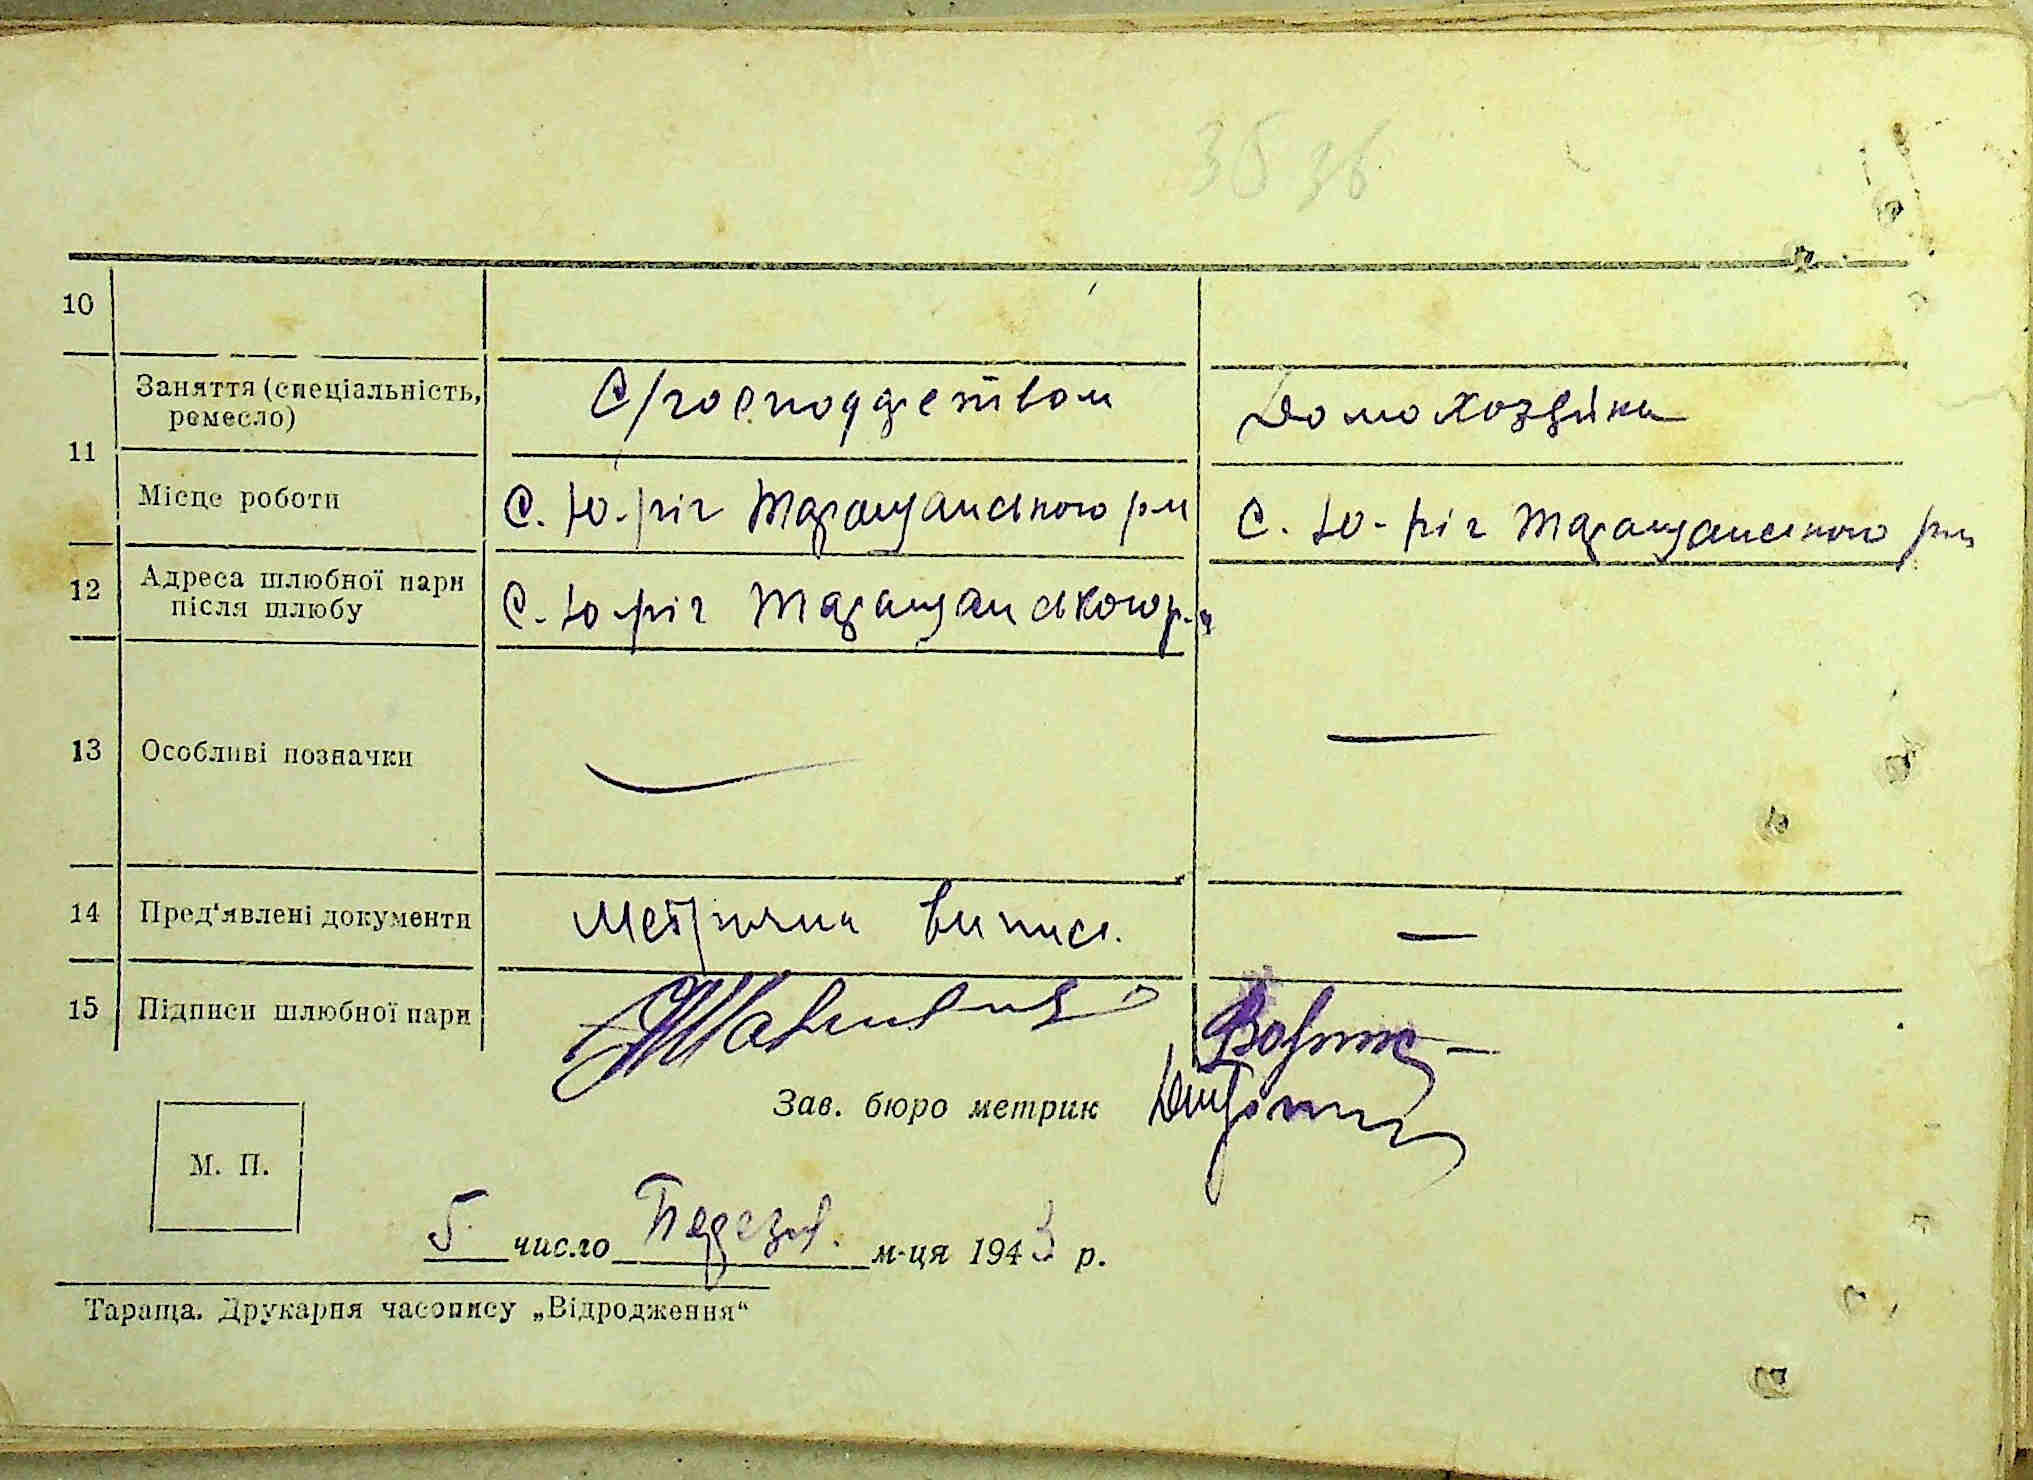 3б зв
10
Заняття (спеціальність, ремесло) С/господдєством Домохозяйка
11
Місце роботи С. Ю-ріг Таращанського р-н С. Ю-ріг Таращанського р-н
12 Адреса шлюбної пари після шлюбу С. Ю-ріг Таращанського р-н
13 Особливі позначки — —
14 Пред'явлені документи Метрична випись. —
15 Підписи шлюбної пари
Зав. бюро метрик
М. П.
5 число Березня м-ця 1943 р.
Тараща. Друкарня часопису „Відродження“